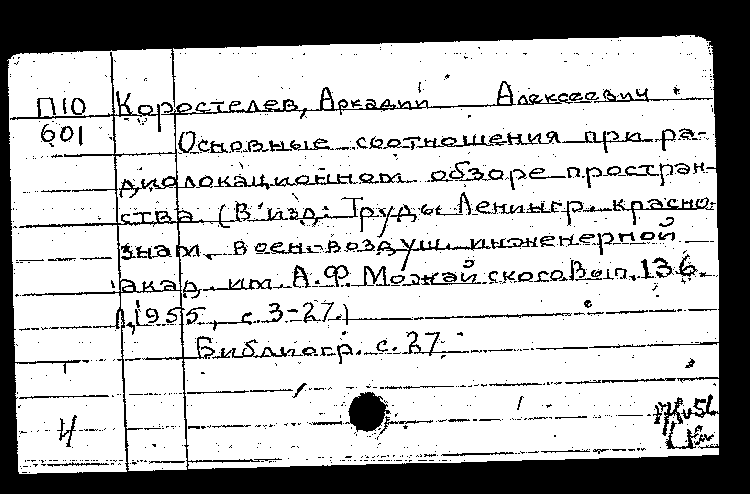 П10 Коростелев, Аркадий Алексеевич
601 Основные соотношения при ра-
диолокационном обзоре простран-
ства. (В изд: Труды Ленингр. красно-
знам. воен-воздуш. инженерной
акад. им. А.Ф. Можайского Вып. 136.
Л, 1955, с. 3-27.)
Библиогр. с. 27.
И